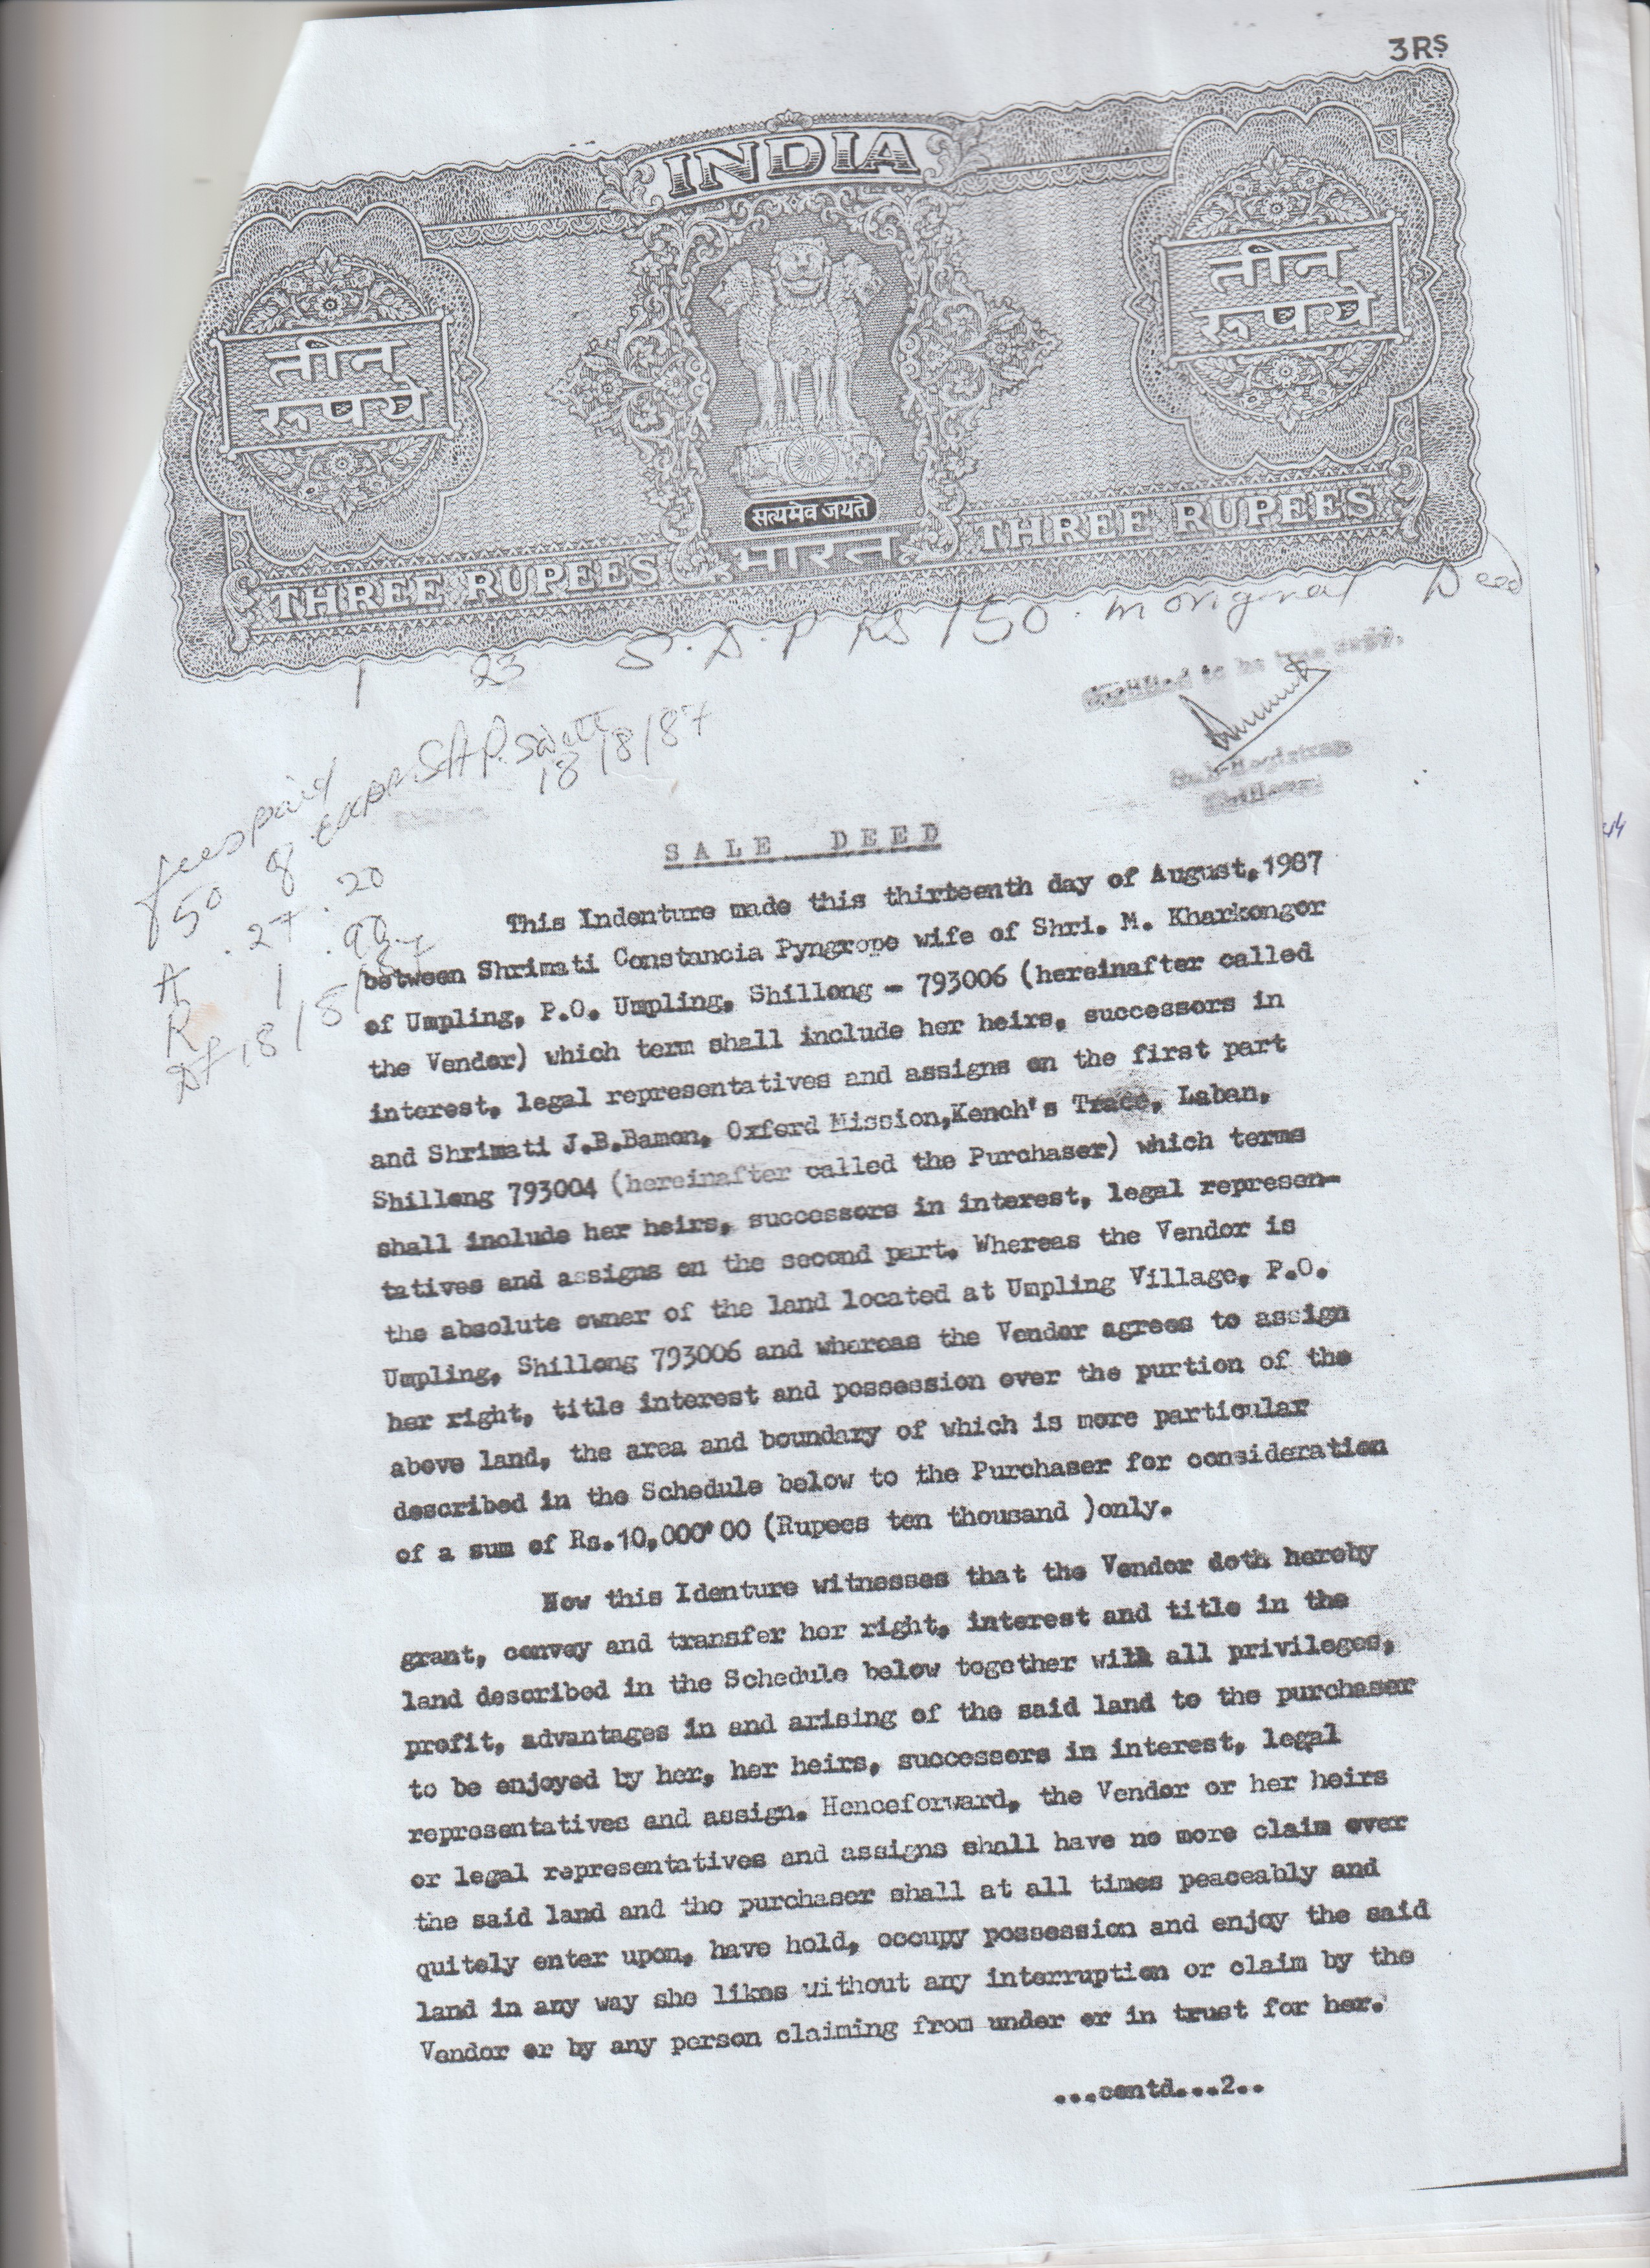 3RS
INDIA
तीन
रूपये
तीन
रूपये
सत्यमेव जयते
भारत
THREE RUPEES
THREE RUPEES
S.D.P Rs 150. in original Deed
1 23
to be true copy.
Sub-Registrar
Shillong
fees paid
18/8/87
50 8
A. 27.20
R 1.90
18/8/87
SALE DEED
This Indenture made this thirteenth day of August,1987
between Shrimati Constancia Pyngrope wife of Shri. M. Kharkongor
of Umpling, P.O. Umpling, Shillong - 793006 (hereinafter called
the Vendor) which term shall include her heirs, successors in
interest, legal representatives and assigns on the first part
and Shrimati J.B.Bamon, Oxford Mission,Kench's Trace, Laban,
Shillong 793004 (hereinafter called the Purchaser) which terms
shall include her heirs, successors in interest, legal represen-
tatives and assigns on the second part. Whereas the Vendor is
the absolute owner of the land located at Umpling Village, P.O.
Umpling, Shillong 793006 and whereas the Vendor agrees to assign
her right, title interest and possession over the purtion of the
above land, the area and boundary of which is more particular
described in the Schedule below to the Purchaser for consideration
of a sum of Rs.10,000'00 (Rupees ten thousand )only.
Now this Identure witnesses that the Vendor doth hereby
grant, convey and transfer her right, interest and title in the
land described in the Schedule below together with all privileges,
profit, advantages in and arising of the said land to the purchaser
to be enjoyed by her, her heirs, successors in interest, legal
representatives and assign. Henceforward, the Vendor or her heirs
or legal representatives and assigns shall have no more claim over
the said land and the purchaser shall at all times peaceably and
quitely enter upon, have hold, occupy possession and enjoy the said
land in any way she likes without any interruption or claim by the
Vendor or by any person claiming from under or in trust for her.
...contd...2..